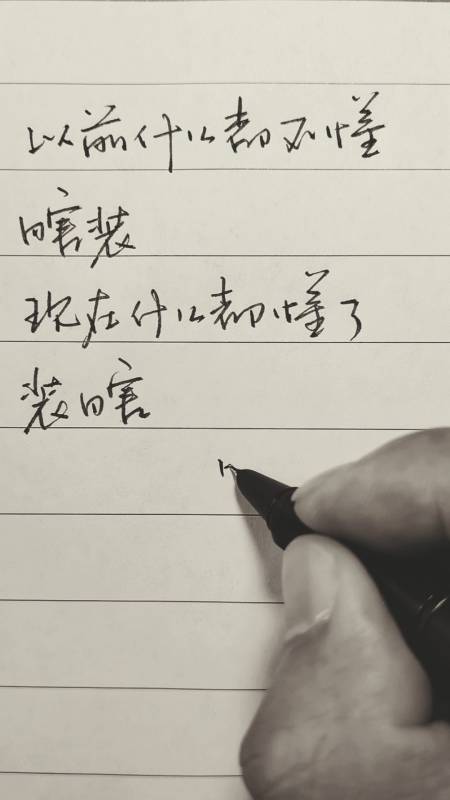 以前什么都不懂
瞎装
现在什么都懂了
装瞎